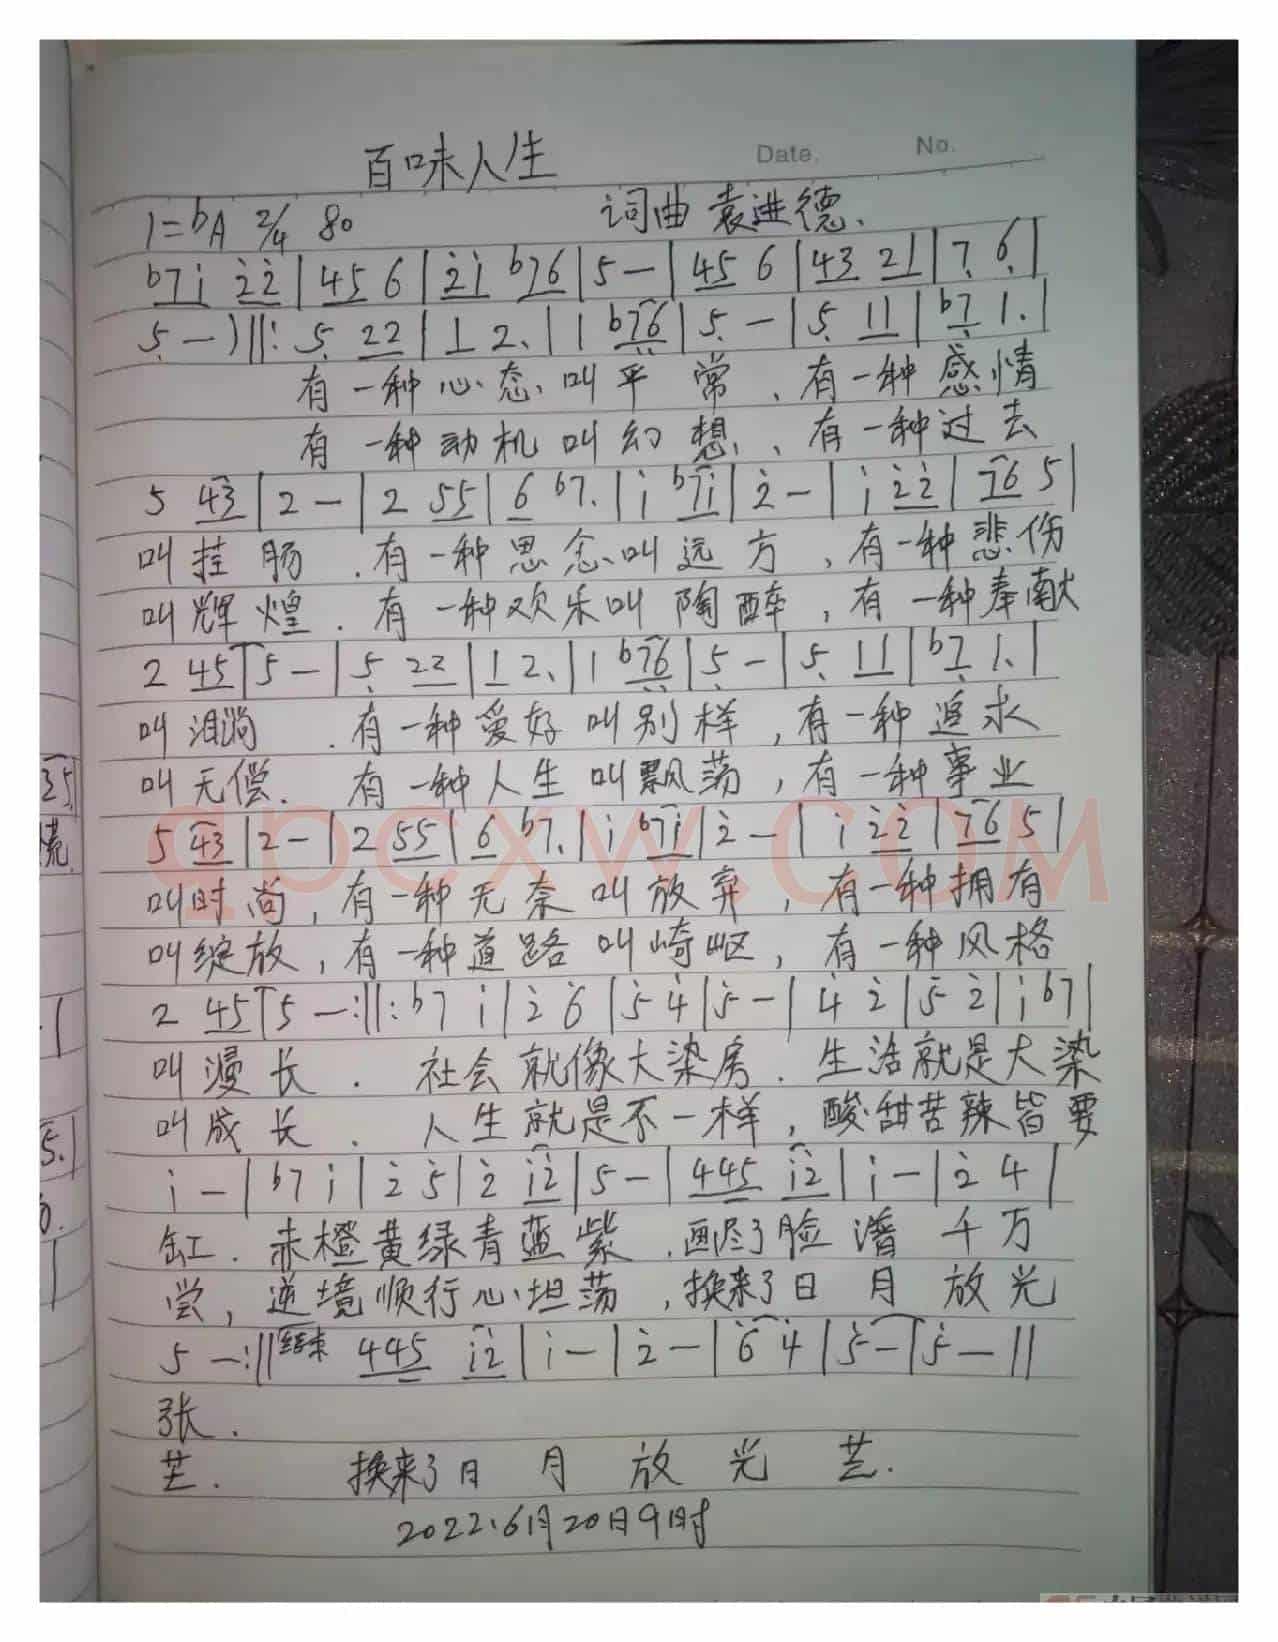 百味人生
Date. No.
1=bA 2/4 80 词曲 袁进德.
b7i 22 | 45 6 | 2i b76 | 5 — | 45 6 | 43 21 | 7. 6. |
5 — ) ||: 5 22 | 1 2. | 1 b76 | 5 — | 5 11 | b7 1. |
有一种心态叫平常、有一种感情
有一种动机叫幻想、有一种过去
5 43 | 2 — | 2 55 | 6 b7. | i b7i | 2 — | i 22 | 76 5 |
叫挂肠.有一种思念叫远方,有一种悲伤
叫辉煌.有一种欢乐叫陶醉,有一种奉献
2 45 | 5 — | 5 22 | 1 2. | 1 b76 | 5 — | 5 11 | b7 1. |
叫泪淌.有一种爱好叫别样,有一种追求
叫无偿.有一种人生叫飘荡,有一种事业
5 43 | 2 — | 2 55 | 6 b7. | i b7i | 2 — | i 22 | 76 5 |
叫时尚,有一种无奈叫放弃,有一种拥有
叫绽放,有一种道路叫崎岖,有一种风格
2 45 | 5 — :||: b7 i | 2 6 | 5 4 | 5 — | 4 2 | 5 2 | i b7 |
叫漫长.社会就像大染房.生活就是大染
叫成长.人生就是不一样,酸甜苦辣皆要
i — | b7 i | 2 5 | 2 i2 | 5 — | 445 i2 | i — | 2 4 |
缸.赤橙黄绿青蓝紫.画尽了脸谱千万
尝,逆境顺行心坦荡,换来了日月放光
5 — :|| 结束 445 i2 | i — | 2 — | 6 4 | 5 — | 5 — ||
张.
芒. 换来了日月放光芒.
2022.6月20日9时
qpcxw.com